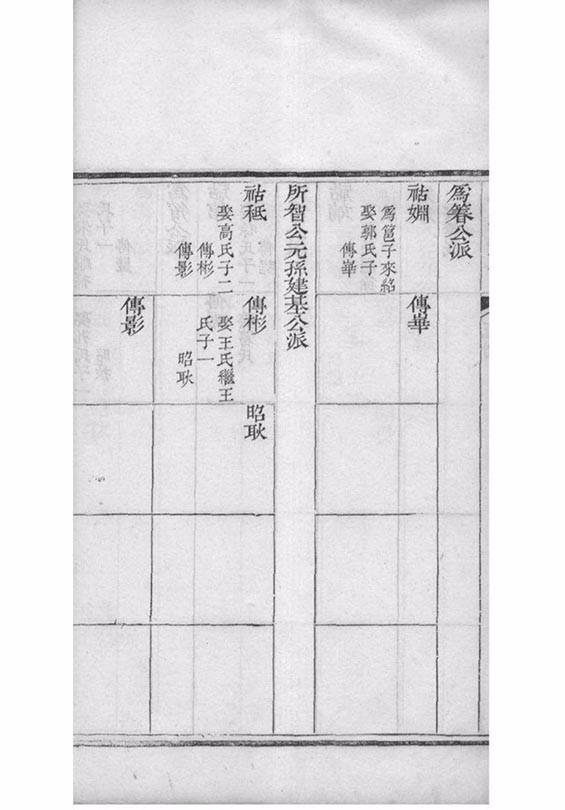 爲箬公派
祜嫻
爲菖子來紹
娶郭氏子
傳畢
傳畢
所智公元孫建基公派
祜秪
娶高氏子二
傳彬
傳影
傳彬
娶王氏繼王
氏子一
昭耿
昭耿
傳影